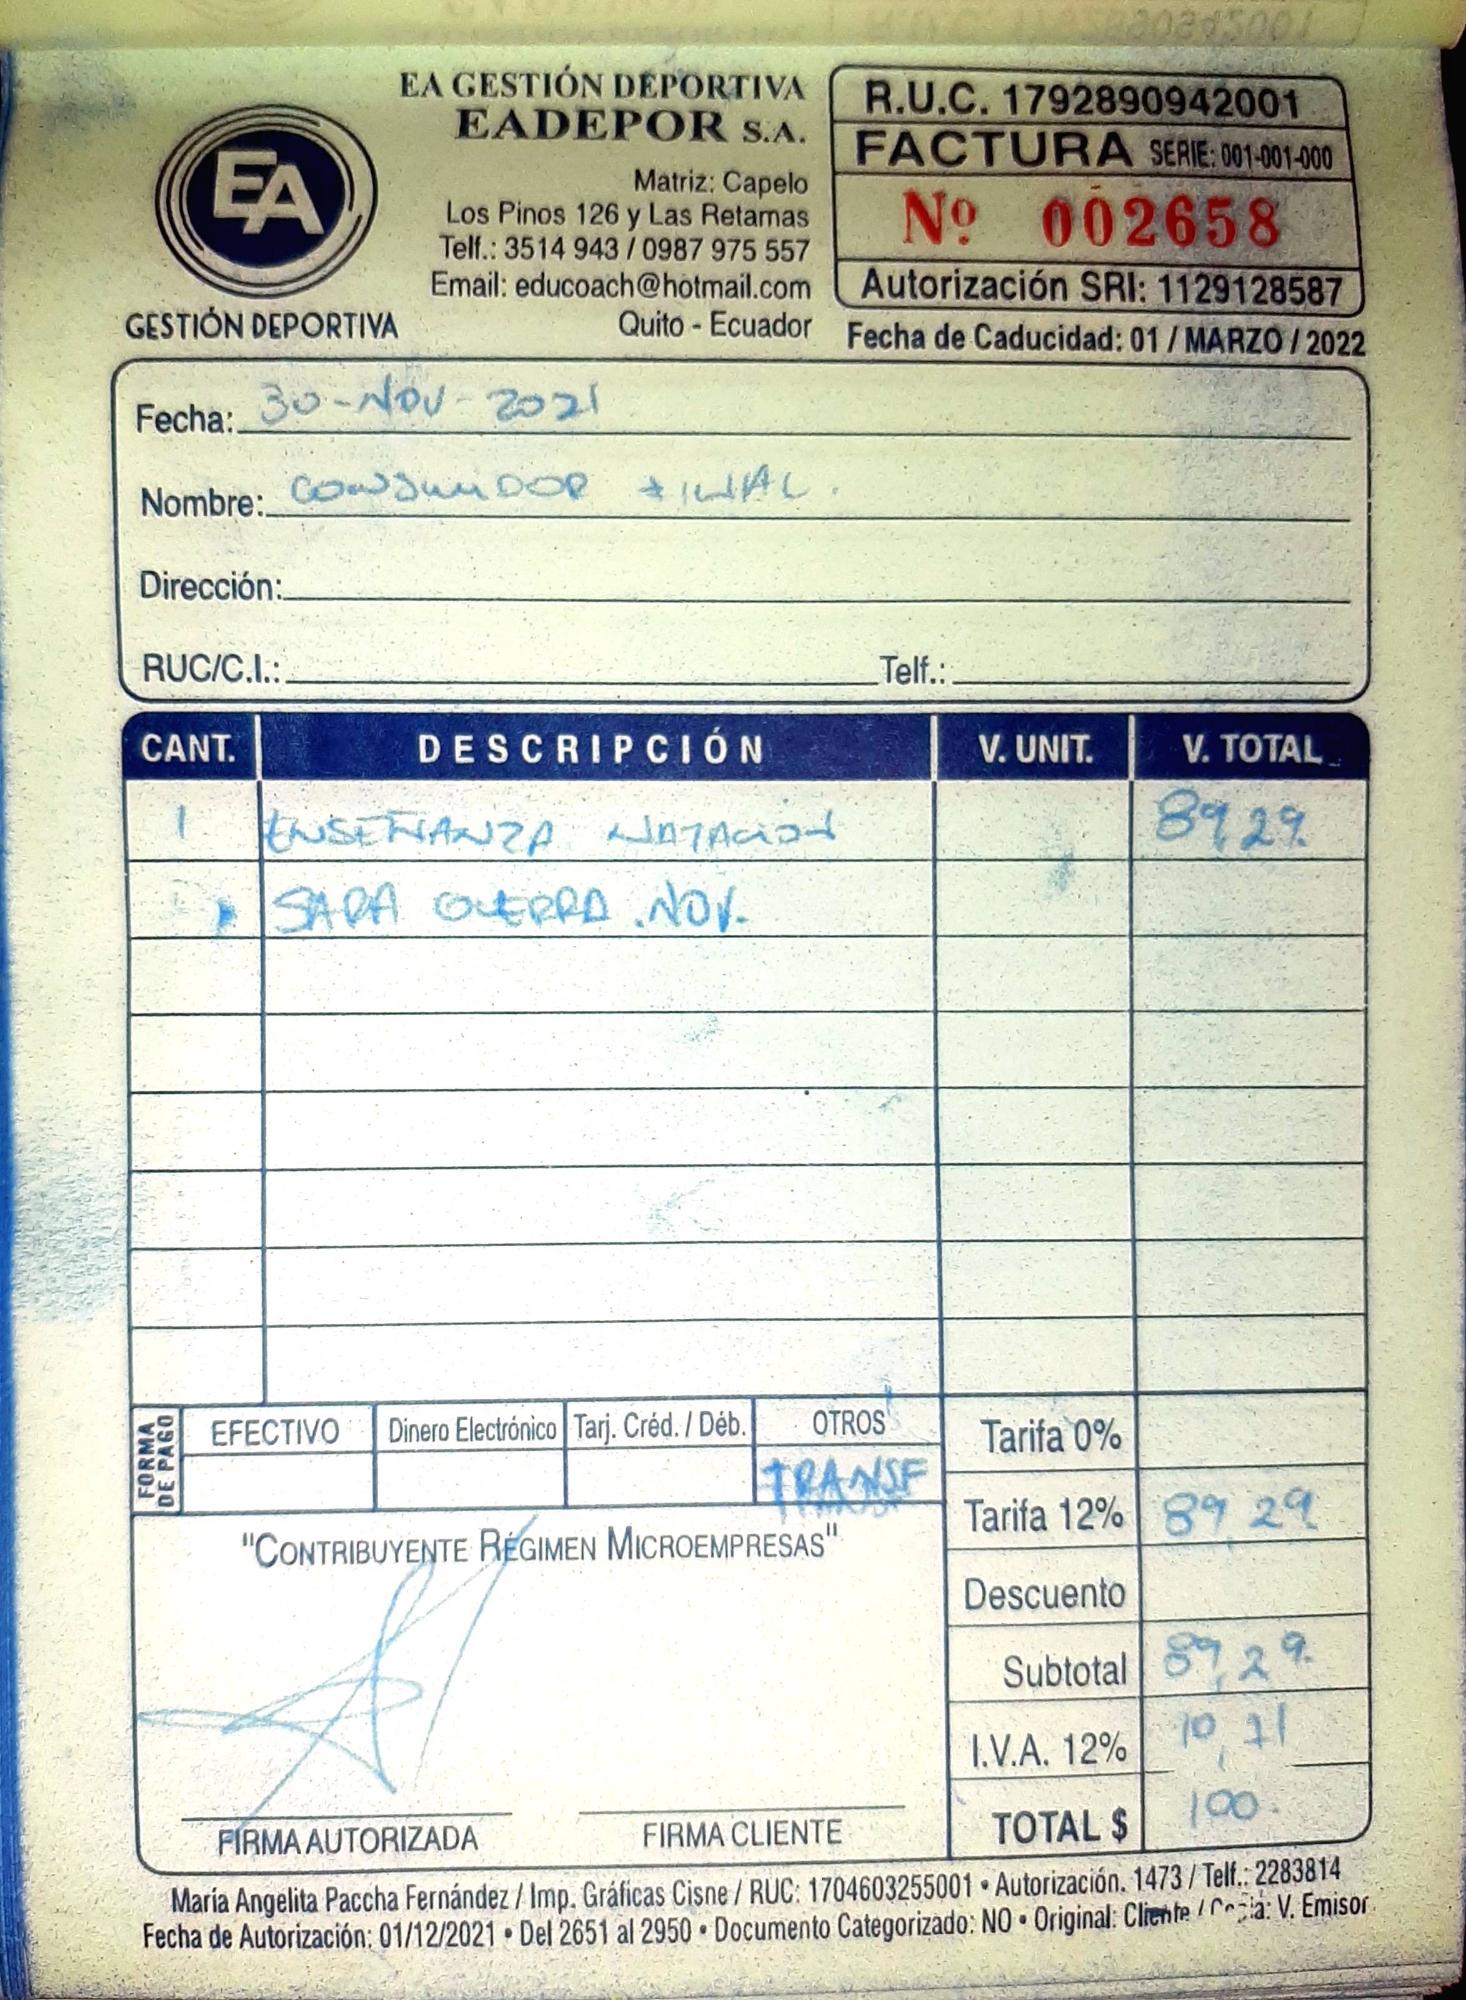 EA GESTIÓN DEPORTIVA
EADEPOR S.A.
Matriz: Capelo
Los Pinos 126 y Las Retamas
Telf.: 3514 943 / 0987 975 557
Email: educoach@hotmail.com
Quito - Ecuador
EA
GESTIÓN DEPORTIVA
R.U.C. 1792890942001
FACTURA SERIE: 001-001-000
Nº 002658
Autorización SRI: 1129128587
Fecha de Caducidad: 01 / MARZO / 2022
Fecha: 30-NOV-2021
Nombre: CONSUMIDOR FINAL.
Dirección:
RUC/C.I.: Telf.:
CANT. DESCRIPCIÓN V. UNIT. V. TOTAL
1 ENSEÑANZA NATACION 89,29.
SARA GUERRA. NOV.
FORMA DE PAGO
EFECTIVO Dinero Electrónico Tarj. Créd. / Déb. OTROS
TRANSF
Tarifa 0%
Tarifa 12% 89,29
Descuento
Subtotal 89,29.
I.V.A. 12% 10,71
TOTAL $ 100.
"CONTRIBUYENTE RÉGIMEN MICROEMPRESAS"
FIRMA AUTORIZADA FIRMA CLIENTE
María Angelita Paccha Fernández / Imp. Gráficas Cisne / RUC: 1704603255001 • Autorización. 1473 / Telf.: 2283814
Fecha de Autorización: 01/12/2021 • Del 2651 al 2950 • Documento Categorizado: NO • Original: Cliente / Copia: V. Emisor